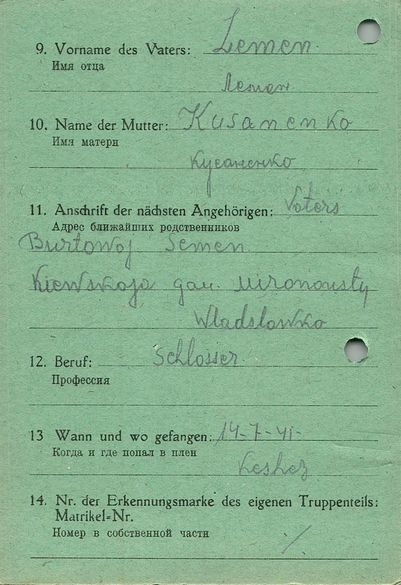 9. Vorname des Vaters: Semen
Имя отца
Лемен
10. Name der Mutter: Kusanenko
Имя матери
Кусаненко
11. Anschrift der nächsten Angehörigen: Vaters
Адрес ближайших родственников
Burtowoj Semen
Kiewskoja gau. Mironowsky
Wladslowko
12. Beruf: Schlosser
Профессия
13 Wann und wo gefangen: 14-7-41-
Когда и где попал в плен
14. Nr. der Erkennungsmarke des eigenen Truppenteils:
Matrikel=Nr.
Номер в собственной части /